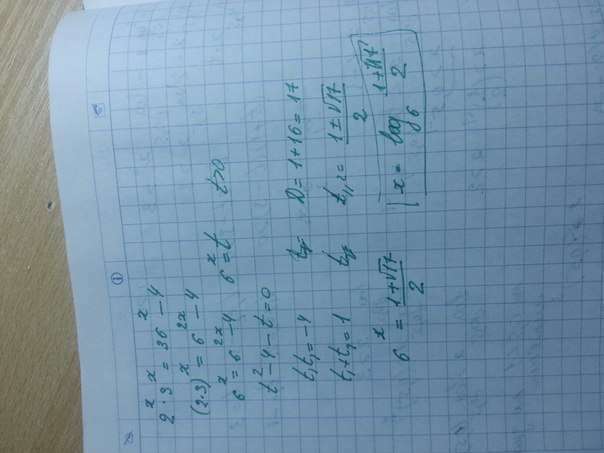 ①
2^x · 3^x = 36^x - 4
(2·3)^x = 6^{2x} - 4
6^x = 6^{2x} - 4   6^x = t   t > 0
t^2 - 4 - t = 0
t_1 t_2 = -4   D = 1 + 16 = 17
t_1 + t_2 = 1   t_{1,2} = \frac{1 ± √17}{2}
6^x = \frac{1 + √17}{2}   x = log_6 \frac{1 + √17}{2}